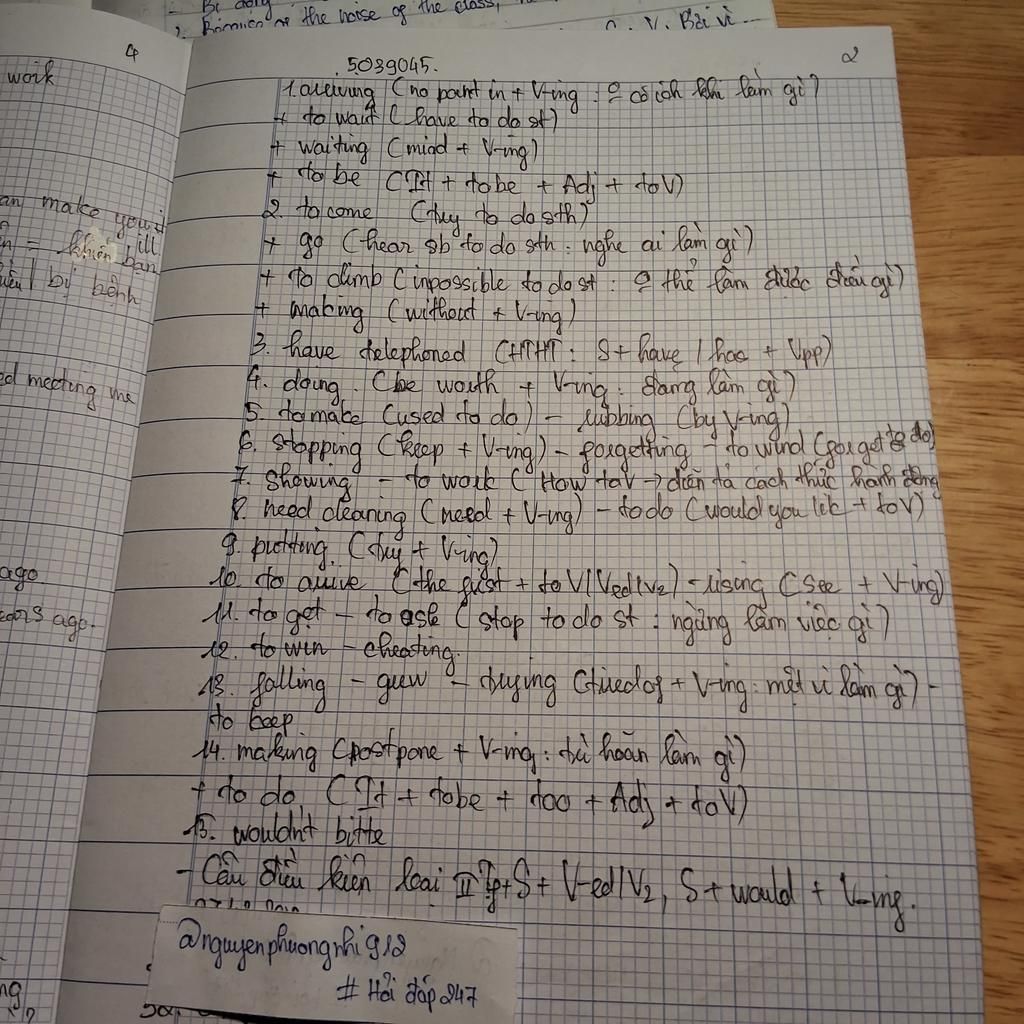 Because of the noise of the class,
V. Bởi vì...
4
work
an make you
ill
= khiến bạn
bị bệnh
ed meeting me
ago
ears ago.
ng
5039045.
2
1. arriving (no point in + V-ing : 0 có ích khi làm gì)
+ to wait (have to do st)
+ waiting (mind + V-ing)
+ to be (It + tobe + Adj + toV)
2. to come (try to do sth)
+ go (hear sb to do sth : nghe ai làm gì)
+ to climb (inpossible to do st : 0 thể làm được điều gì)
+ making (without + V-ing)
3. have telephoned (HTHT : S + have / has + Vpp)
4. doing. (be worth + V-ing : đang làm gì)
5. to make (used to do) - rubbing (by V-ing)
6. stopping (keep + V-ing) - forgetting - to wind (forget to do)
7. showing - to work (How toV → diễn tả cách thức hành động
8. need cleaning (need + V-ing) - to do (would you like + toV)
9. putting. (try + V-ing)
10. to arrive (the first + to V(Ved/V2) - rising (see + V-ing)
11. to get - to ask (stop to do st : ngừng làm việc gì)
12. to win - cheating.
13. falling - grew - trying (tiredof + V-ing : mệt vì làm gì) -
to keep
14. making (postpone + V-ing : trì hoãn làm gì)
+ to do (It + tobe + too + Adj + toV)
15. wouldn't bitte
- Câu điều kiện loại II: If + S + V-ed/V2, S + would + V-ing.
@nguyenphuongnhi912
# Hỏi đáp 247